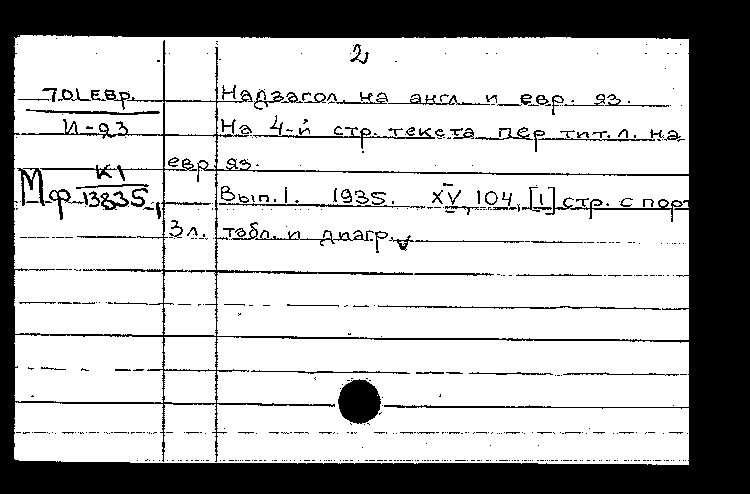 2
701евр. Надзагол. на англ. и евр. яз.
И-93 На 4-й стр. текста пер тит.л. на
евр яз.
Мф К1
13835-1 Вып.1. 1935. XV, 104, [1] стр. с порт
3 л. табл. и диагр.